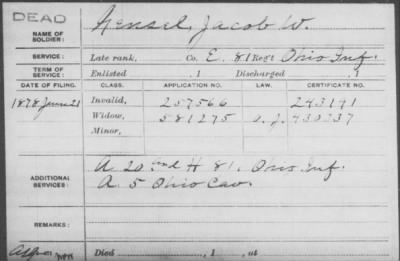 DEAD
NAME OF SOLDIER: Hensel, Jacob W.
SERVICE: Late rank, Co. E. 81 Regt Ohio Inf.
TERM OF SERVICE: Enlisted , 1 Discharged , 1
DATE OF FILING. CLASS. APPLICATION NO. LAW. CERTIFICATE NO.
1878 June 21 Invalid, 257566 243141
Widow, 581275 430337
Minor,
ADDITIONAL SERVICES: A 20 and H 81. Ohio Inf.
A. 5 Ohio Cav.
REMARKS:
Died , 1 , at